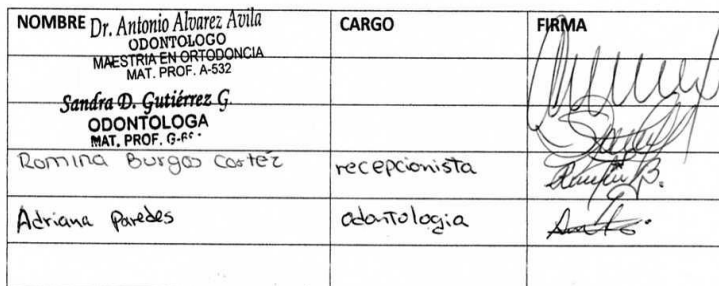 NOMBRE CARGO FIRMA
Dr. Antonio Alvarez Avila
ODONTOLOGO
MAESTRIA EN ORTODONCIA
MAT. PROF. A-532
Sandra D. Gutiérrez G.
ODONTOLOGA
MAT. PROF.
Romina Burgos Cortéz recepcionista
Adriana Paredes odontologia